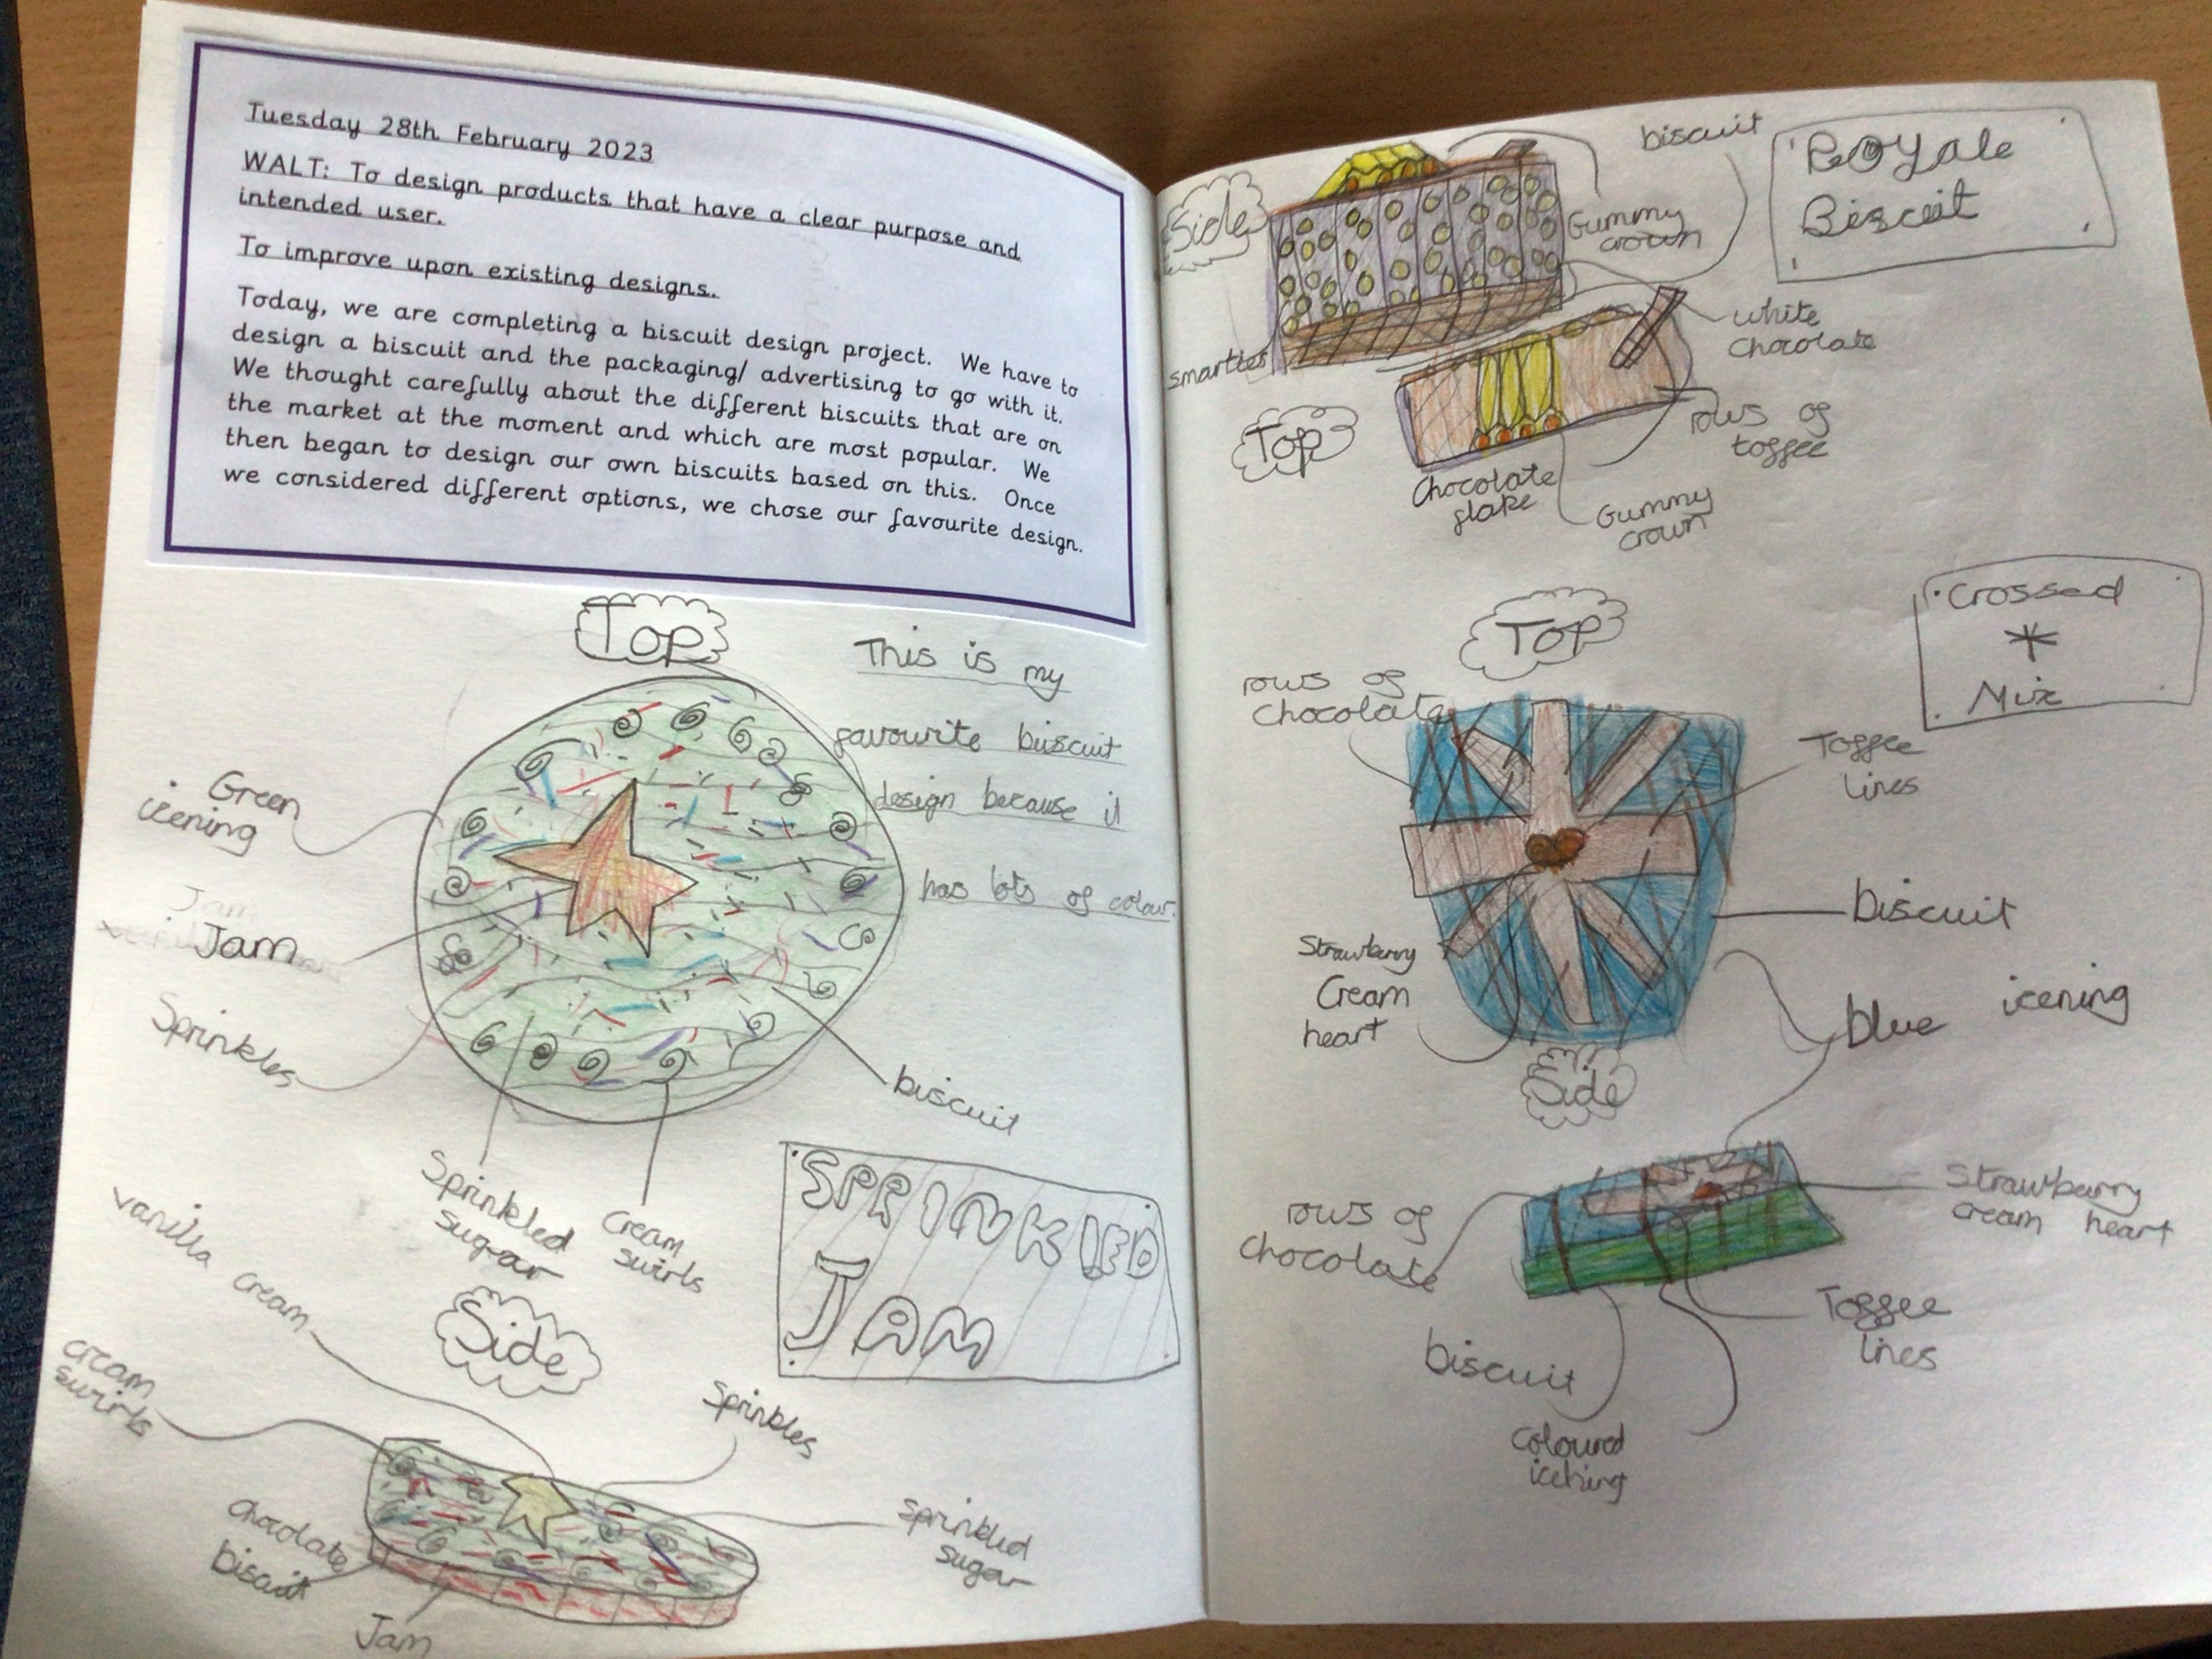 Tuesday 28th February 2023
WALT: To design products that have a clear purpose and
intended user.
To improve upon existing designs.
Today, we are completing a biscuit design project. We have to
design a biscuit and the packaging/ advertising to go with it.
We thought carefully about the different biscuits that are on
the market at the moment and which are most popular. We
then began to design our own biscuits based on this. Once
we considered different options, we chose our favourite design.
Top
This is my
favourite biscuit
design because it
has lots of colour.
Green
icening
Jam
Jam
Sprinkles
biscuit
Sprinkled
sugar
Cream
swirls
SPRINKLED
JAM
vanilla cream
Side
cream
swirls
Sprinkles
sprinkled
sugar
chocolate
biscuit
Jam
Royale
Biscuit
biscuit
Side
Gummy
crown
white
chocolate
smarties
Top
rows of
toffee
Chocolate
flake
Gummy
crown
Crossed
Mix
Top
rows of
chocolate
Toffee
lines
biscuit
Strawberry
Cream
heart
blue icening
Side
Strawberry
cream heart
rows of
chocolate
Toffee
lines
biscuit
Coloured
icening